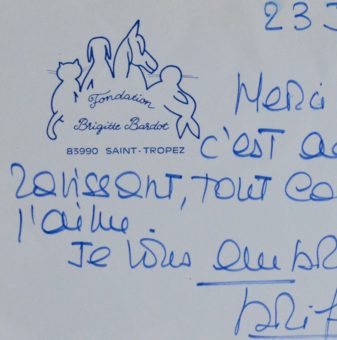 23
Fondation
Brigitte Bardot
83990 SAINT-TROPEZ
Merci
c'est
ravissant, tout
j'aime.
Je vous